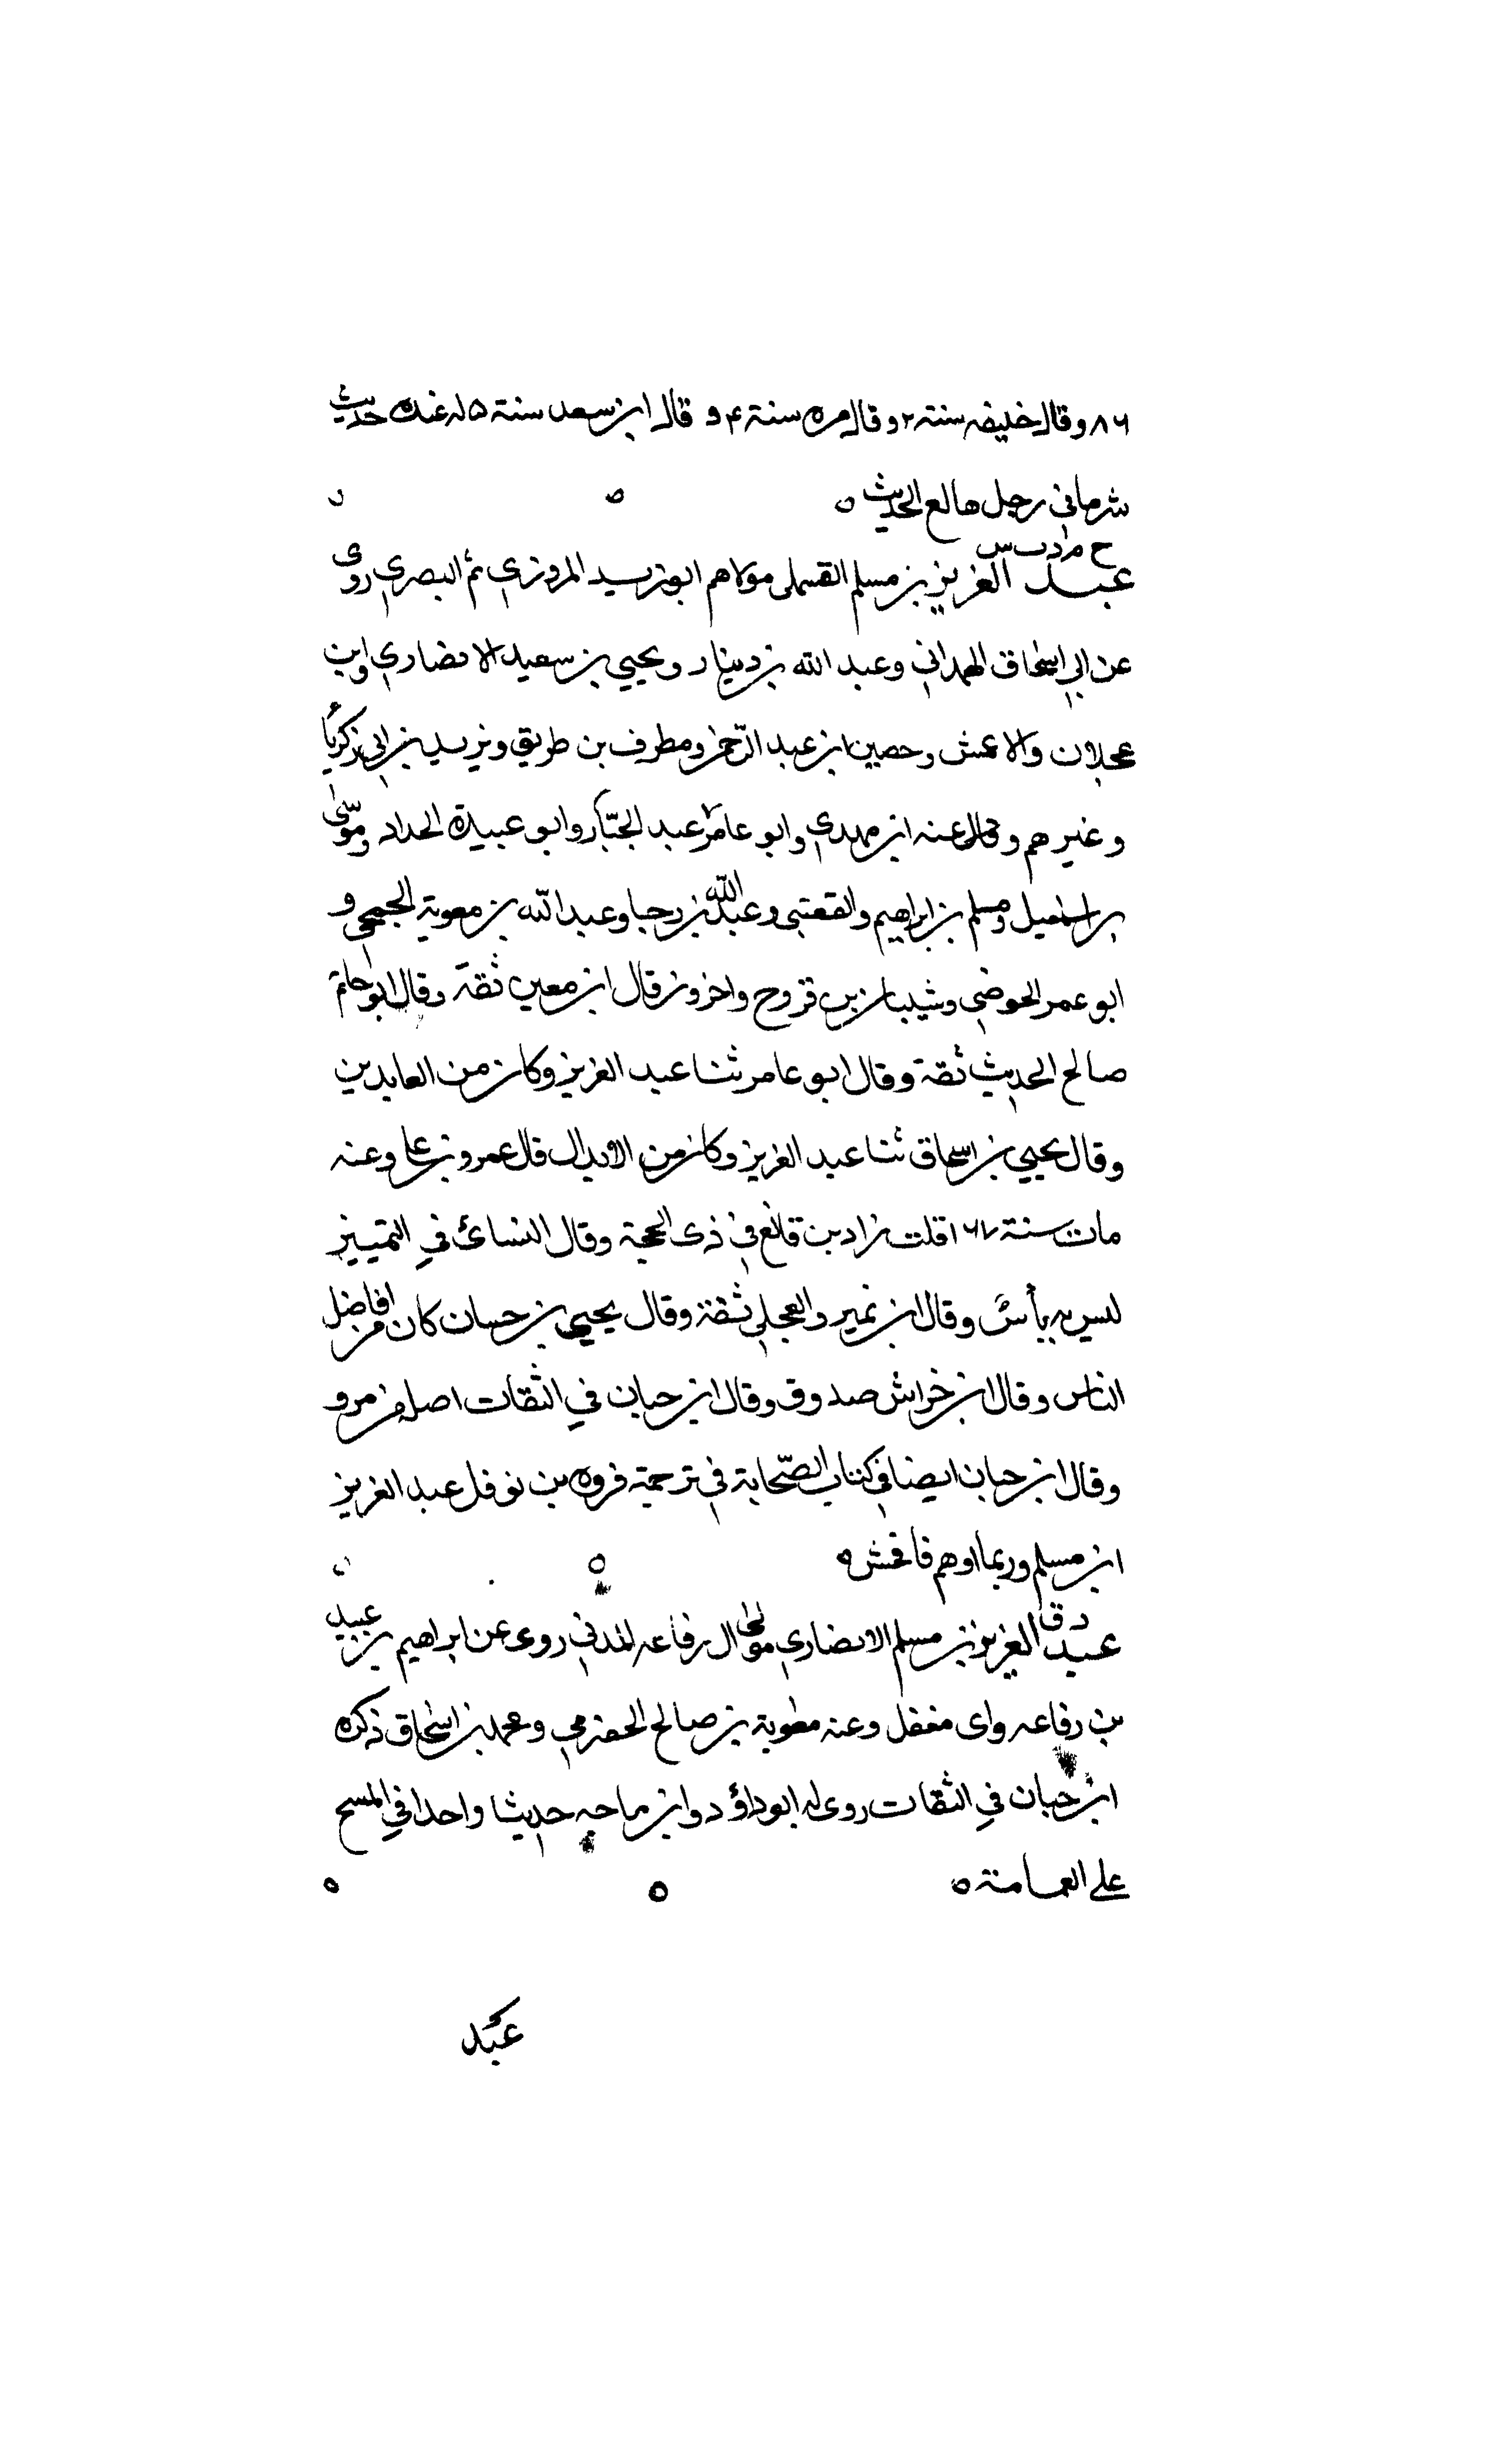 ٨٦ وقال خليفه سنة ٢ وقال مره سنة ۴ و قال ابن سعد سنة ۵ له عنده حديث
شر ما في رجل هالع الحديث ه
خ م د ت س
عبد العزيز بن مسلم القسملى مولاهم ابو زيد المروزي ثم البصري روى
عن ابي اسحاق الهمداني وعبد الله بن دينار و يحيي بن سعيد الانصاري وابن
عجلان والاعمش وحصين ابن عبد الرحمن ومطرف بن طريق ويزيد بن ابي زكريا
و غيرهم و عنه ابن مهدي وابو عامر عبد الجبار وابو عبيدة الحداد وموسى
بن اسمعيل ومسلم بن ابراهيم والقعنبى وعبد الله بن رجا وعبد الله بن معوية الجمحي و
ابو عمر الحوضي وشيبان بن فروح واخرون قال ابن معين ثقة وقال ابو حاتم
صالح الحديث ثقة وقال ابو عامر ثنا عبد العزيز وكان من العابدين
وقال يحيي بن اسحاق ثنا عبد العزيز وكان من الابدال قال عمرو بن على وعنه
مات سنة ١٦٧ قلت زاد بن قانع في ذى الحجة وقال النسائ في التمييز
ليس به بأس وقال ابن نمير والعجلي ثقة وقال يحيي بن حسان كان من افاضل
الناس وقال ابن خراش صدوق وقال ابن حبان في الثقات اصله من مرو
وقال ابن حبان ايضا في كتاب الصحابة في ترجمة فروه بن نوفل عبد العزيز
ابن مسلم وربما اوهم فافحش ه
د ق
عبد العزيز بن مسلم الانصاري مولى ال رفاعه المدني روى عن ابراهيم بن عبيد
بن رفاعه وابى معقل وعنه معوية بن صالح الحضرمي و محمد بن اسحاق ذكره
ابن حبان في الثقات روى له ابوداؤد وابن ماجه حديثا واحدا في المسح
على العمامة ه
عبد